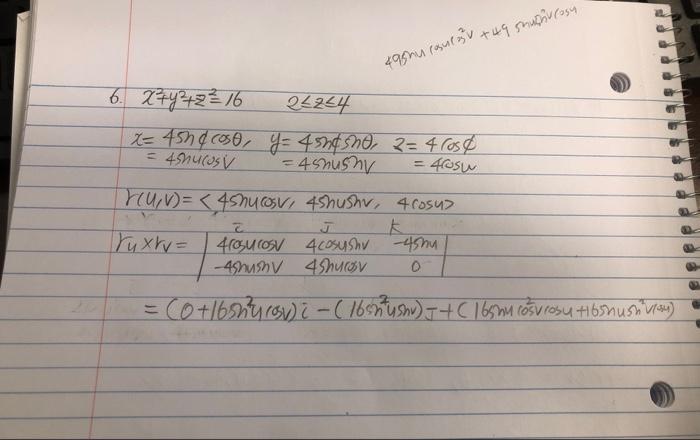 49sinu cosu cos²v + 49 sinusin²v cosu
6. x²+y²+z²=16 2≤z≤4
x= 4sinφcosθ, y= 4sinφsinθ, z= 4cosφ
= 4sinucosv = 4sinusinv = 4cosu
r(u,v)= <4sinucosv, 4sinusinv, 4cosu>
i J K
ru×rv= | 4cosucosv 4cosusinv -4sinu |
| -4sinusinv 4sinucosv 0 |
= (0+16sin²ucosv)i -(16sin²usinv)J+(16sinucos²vcosu+16sinusin²vcosu)